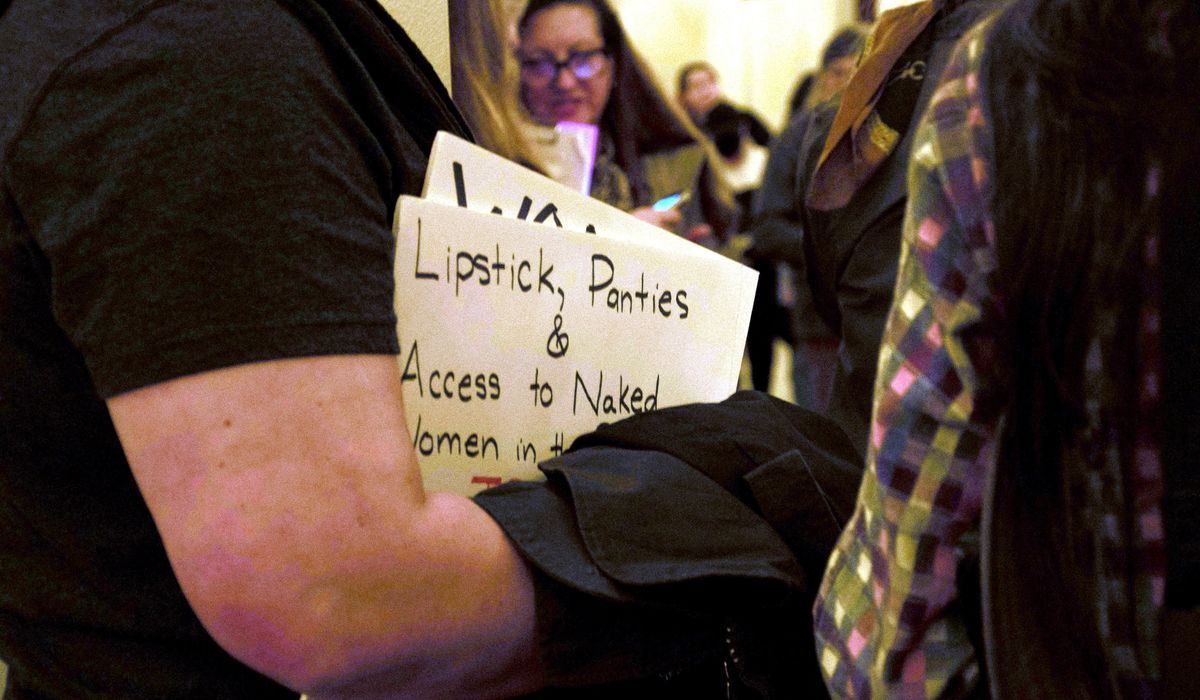 Lipstick, Panties
&
Access to Naked
Women in